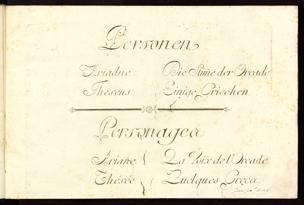 Personen
Ariadne. Die Stim̃e der Oreade
Theseus. Einige Griechen
Personages
Ariañe La Voix de l'Oreade
Thésée Quelques Grecs